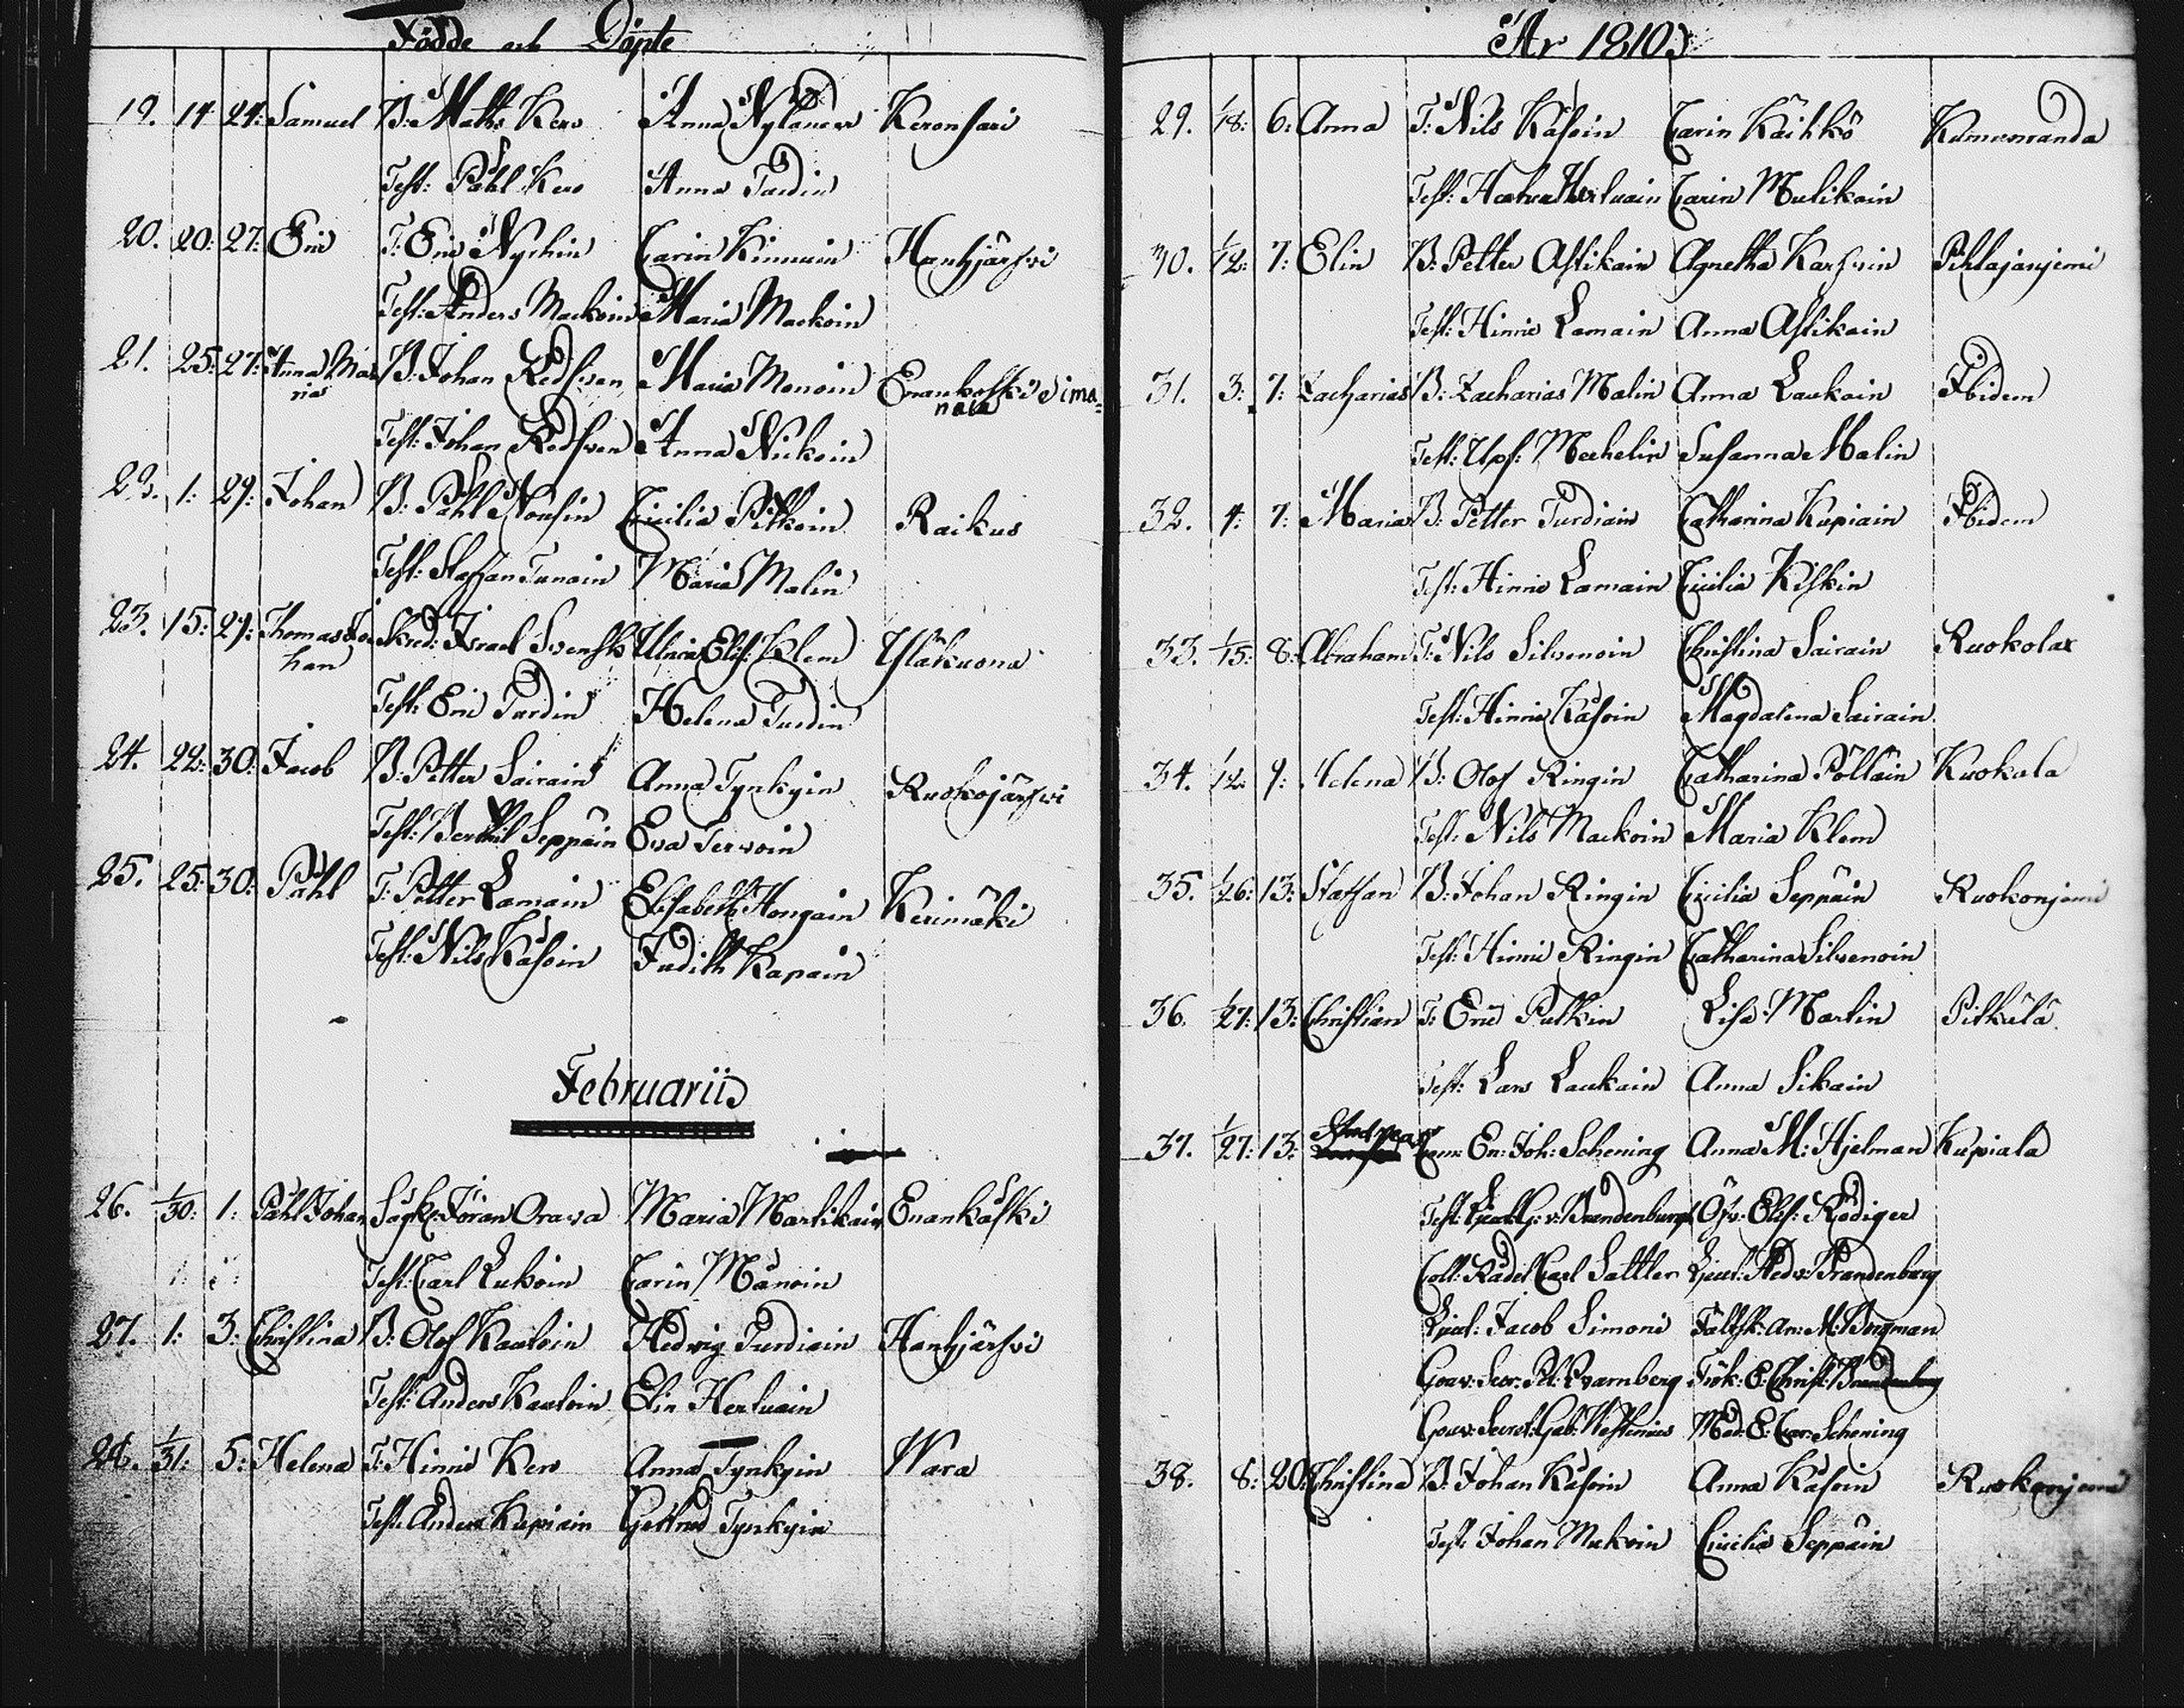 Födde och Döpte
19. 14 24: Samuel B: Maths Kero Anna Nylander Keronsari
Test: Påhl Kero Anna Turdin
20. 20: 27: Eric T: Eric Nyckin Carin Kinnuin Hanhjärfvi
Test: Anders Mackoin Maria Mackoin
21. 25: 27: Anna Ma= B: Johan Redsven Maria Monoin Enankoski Sima=
ria nala
Test: Johan Redsven Anna Nickoin
22. 1: 29: Johan B: Påhl Nousin Cicilia Pitkoin Raikus
Test: Staffan Tunoin Maria Malin
23. 15: 29: Thomas Jo= Skred: Israel Svensk Ulrica Elis: Klem Yläkuona
han
Test: Eric Turdin Helena Turdin
24. 22: 30: Jacob B: Petter Sairain Anna Tynkyin Ruokojärfvi
Test: Berthil Seppäin Eva Tervoin
25. 25: 30: Påhl T: Petter Lamain Elisabeth Hongain Kerimäki
Test: Nils Käsoin Judith Kapain
Februarii
26. 1/30: 1: Påhl Johan Sågk: Jöran Orava Maria Martikain Enankåski
Test: Carl Lukoin Carin Mänoin
27. 1: 3: Christina B: Olof Kauloin Hedvig Turdiain Hanhjärfvi
Test: Anders Kauloin Elin Herluain
28. 1/31: 5: Helena T: Hinric Kero Anna Tynkyin Wara
Test: Anders Kupiain Gertrud Tynkyin
År 1810
29. 1/18: 6: Anna T: Nils Käsoin Carin Käihkö Kummunranda
Test: Herluain Carin Mulikain
30. 1/12: 7: Elin B: Petter Astikain Agnetha Karsvin Pihlajanjemi
Test: Hinric Lamain Anna Astikain
31. 3: 7: Zacharias B: Zacharias Malin Anna Laukain Ibidem
Test: Ups: Mechelin Susanna Malin
32. 4: 7: Maria B: Petter Turdiain Catharina Kupiain Ibidem
Test: Hinric Lamain Cicilia Kiskin
33. 1/15: 8: Abraham T: Nils Silvenoin Christina Sairain Ruokolax
Test: Hinric Käsoin Magdalena Sairain
34. 1/12: 9: Helena B: Olof Ringin Catharina Pölläin Kuokala
Test: Nils Mackoin Maria Klem
35. 1/26: 13: Staffan B: Johan Ringin Cicilia Seppäin Ruokonjemi
Test: Hinric Ringin Catharina Silvenoin
36. 1/27: 13: Christian T: Eric Putkin Lisa Martin Pitkälä
Test: Lars Laukain Anna Sikain
37. 1/27: 13: Andreas En: Joh: Schening Anna M: Hjelman Kupiala
Test: G: v: Brandenburg Öfv: Elis: Rödiger
Coll: Rådet Carl Sattler Lieut: Hedv: Brandenburg
Lieut: Jacob Simoni Fältsk: An: M: Bergman
Gouv: Secr: Pet: Bramberg Frök: E: Christ: Brandenburg
Gouv: Secret: Gab: Westenius Mad: E: Car: Schening
38. 8: 20: Christina B: Johan Käsoin Anna Käsoin Ruokonjemi
Test: Johan Mukoin Cicilia Seppäin